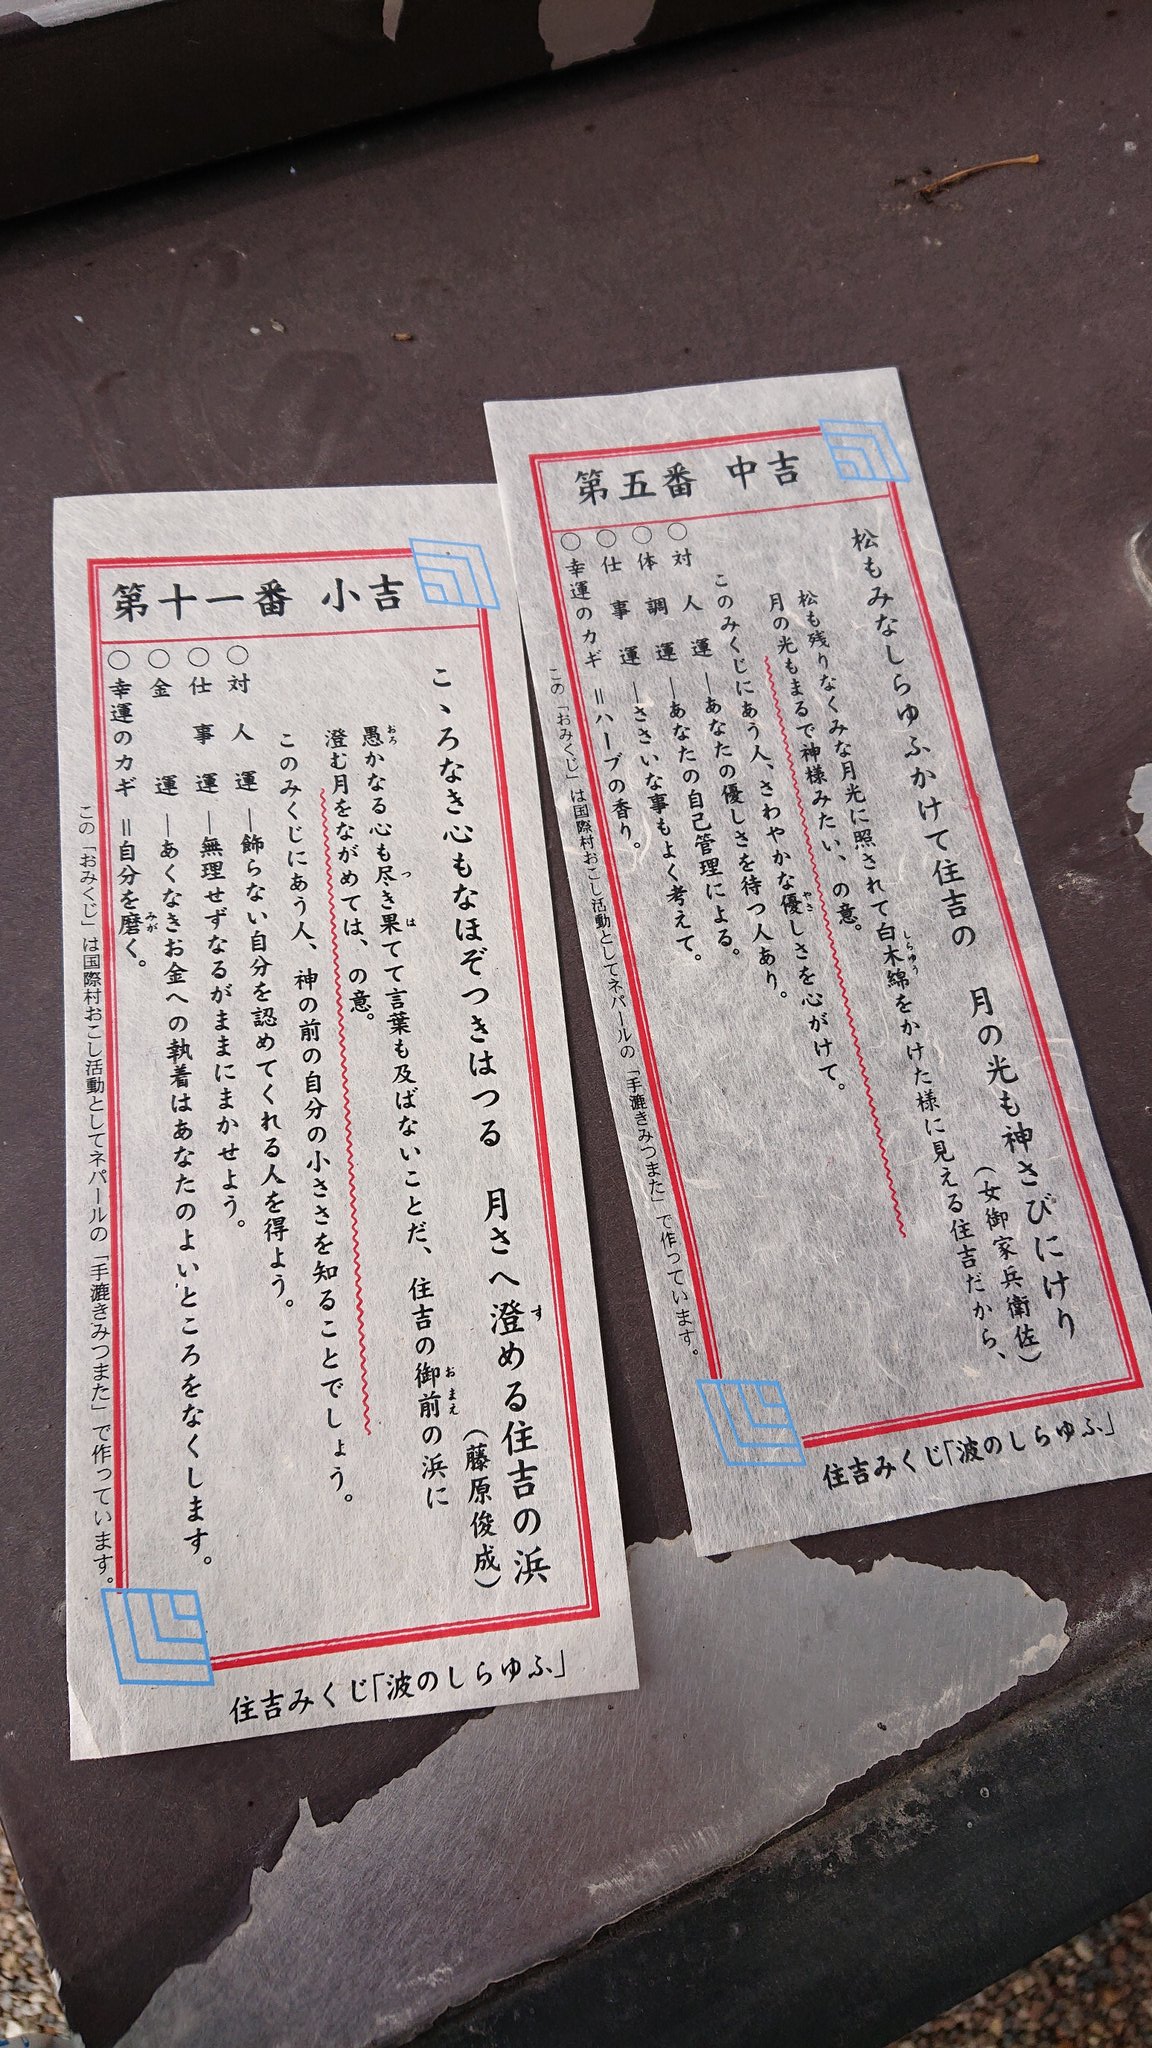 第五番 中吉
松もみなしらゆふかけて住吉の 月の光も神さびにけり
(女御家兵衛佐)
松も残りなくみな月光に照されて白木綿をかけた様に見える住吉だから、
しらゆう
月の光もまるで神様みたい、の意。
このみくじにあう人、さわやかな優しさを心がけて。
やさ
○対人運―あなたの優しさを待つ人あり。
○体調運―あなたの自己管理による。
○仕事運―ささいな事もよく考えて。
○幸運のカギ=ハーブの香り。
この「おみくじ」は国際村おこし活動としてネパールの「手漉きみつまた」で作っています。
住吉みくじ「波のしらゆふ」
第十一番 小吉
こゝろなき心もなほぞつきはつる 月さへ澄める住吉の浜
す
(藤原俊成)
愚かなる心も尽き果てて言葉も及ばないことだ、住吉の御前の浜に
おろ
つ
は
おまえ
澄む月をながめては、の意。
このみくじにあう人、神の前の自分の小ささを知ることでしょう。
○対人運―飾らない自分を認めてくれる人を得よう。
○仕事運―無理せずなるがままにまかせよう。
○金運―あくなきお金への執着はあなたのよいところをなくします。
○幸運のカギ=自分を磨く。
みが
この「おみくじ」は国際村おこし活動としてネパールの「手漉きみつまた」で作っています。
住吉みくじ「波のしらゆふ」